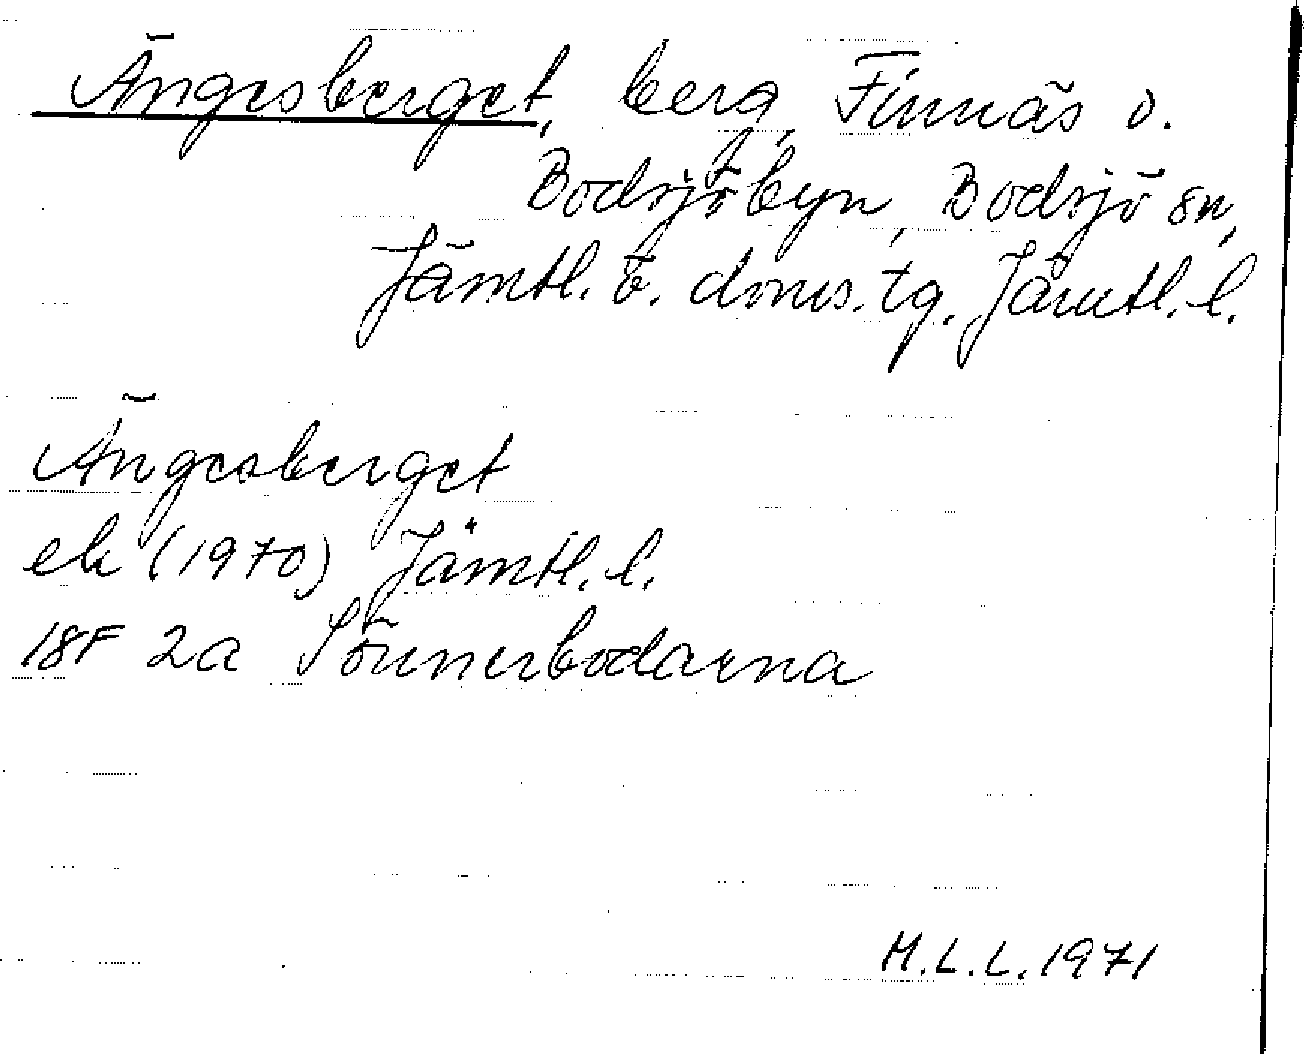 Ängesberget, berg, Finnäs o.
Bodsjöbyn, Bodsjö sn,
Jämtl. ö. doms. tg. Jämtl. l.
Ängesberget
ek (1970) Jämtl. l.
18F 2a Sönnerbodarna
M.L.L. 1971